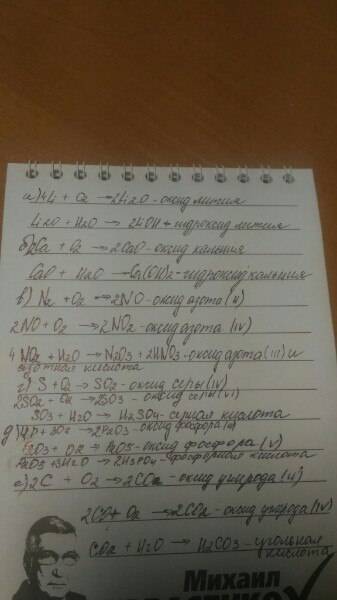 а) 4Li + O2 → 2Li2O - оксид лития
Li2O + H2O → 2LiOH - гидроксид лития
б) 2Ca + O2 → 2CaO - оксид кальция
CaO + H2O → Ca(OH)2 - гидроксид кальция
в) N2 + O2 → 2NO - оксид азота (II)
2NO + O2 → 2NO2 - оксид азота (IV)
4NO2 + H2O → N2O3 + 2HNO3 - оксид азота (III) и
азотная кислота
г) S + O2 → SO2 - оксид серы (IV)
2SO2 + O2 → 2SO3 - оксид серы (VI)
SO3 + H2O → H2SO4 - серная кислота
д) 4P + 3O2 → 2P2O3 - оксид фосфора
P2O3 + O2 → P2O5 - оксид фосфора (V)
P2O5 + 3H2O → 2H3PO4 - фосфорная кислота
е) 2C + O2 → 2CO - оксид углерода (II)
2CO + O2 → 2CO2 - оксид углерода (IV)
CO2 + H2O → H2CO3 - угольная
кислота
Михаил